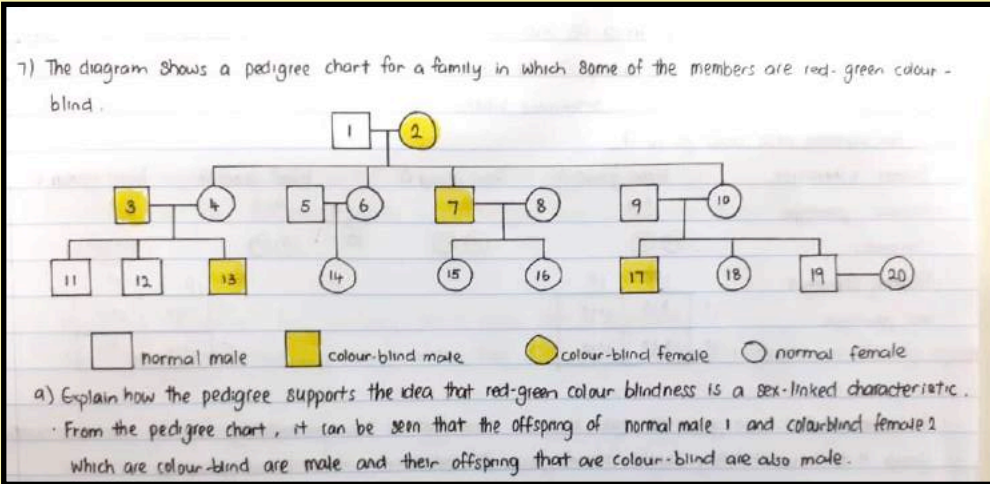 7) The diagram shows a pedigree chart for a family in which some of the members are red-green colour-
blind.
1 2
3 4 5 6 7 8 9 10
11 12 13 14 15 16 17 18 19 20
normal male colour-blind male colour-blind female normal female
a) Explain how the pedigree supports the idea that red-green colour blindness is a sex-linked characteristic.
· From the pedigree chart, it can be seen that the offspring of normal male 1 and colourblind female 2
which are colour-blind are male and their offspring that are colour-blind are also male.